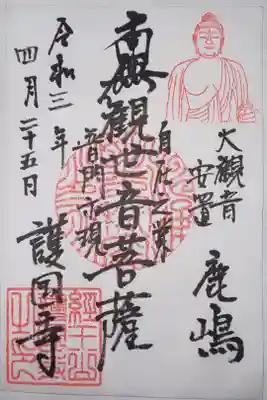 大観音
安置
鹿嶋
南無観世音菩薩
普門示現
令和三年
四月二十五日
護国寺